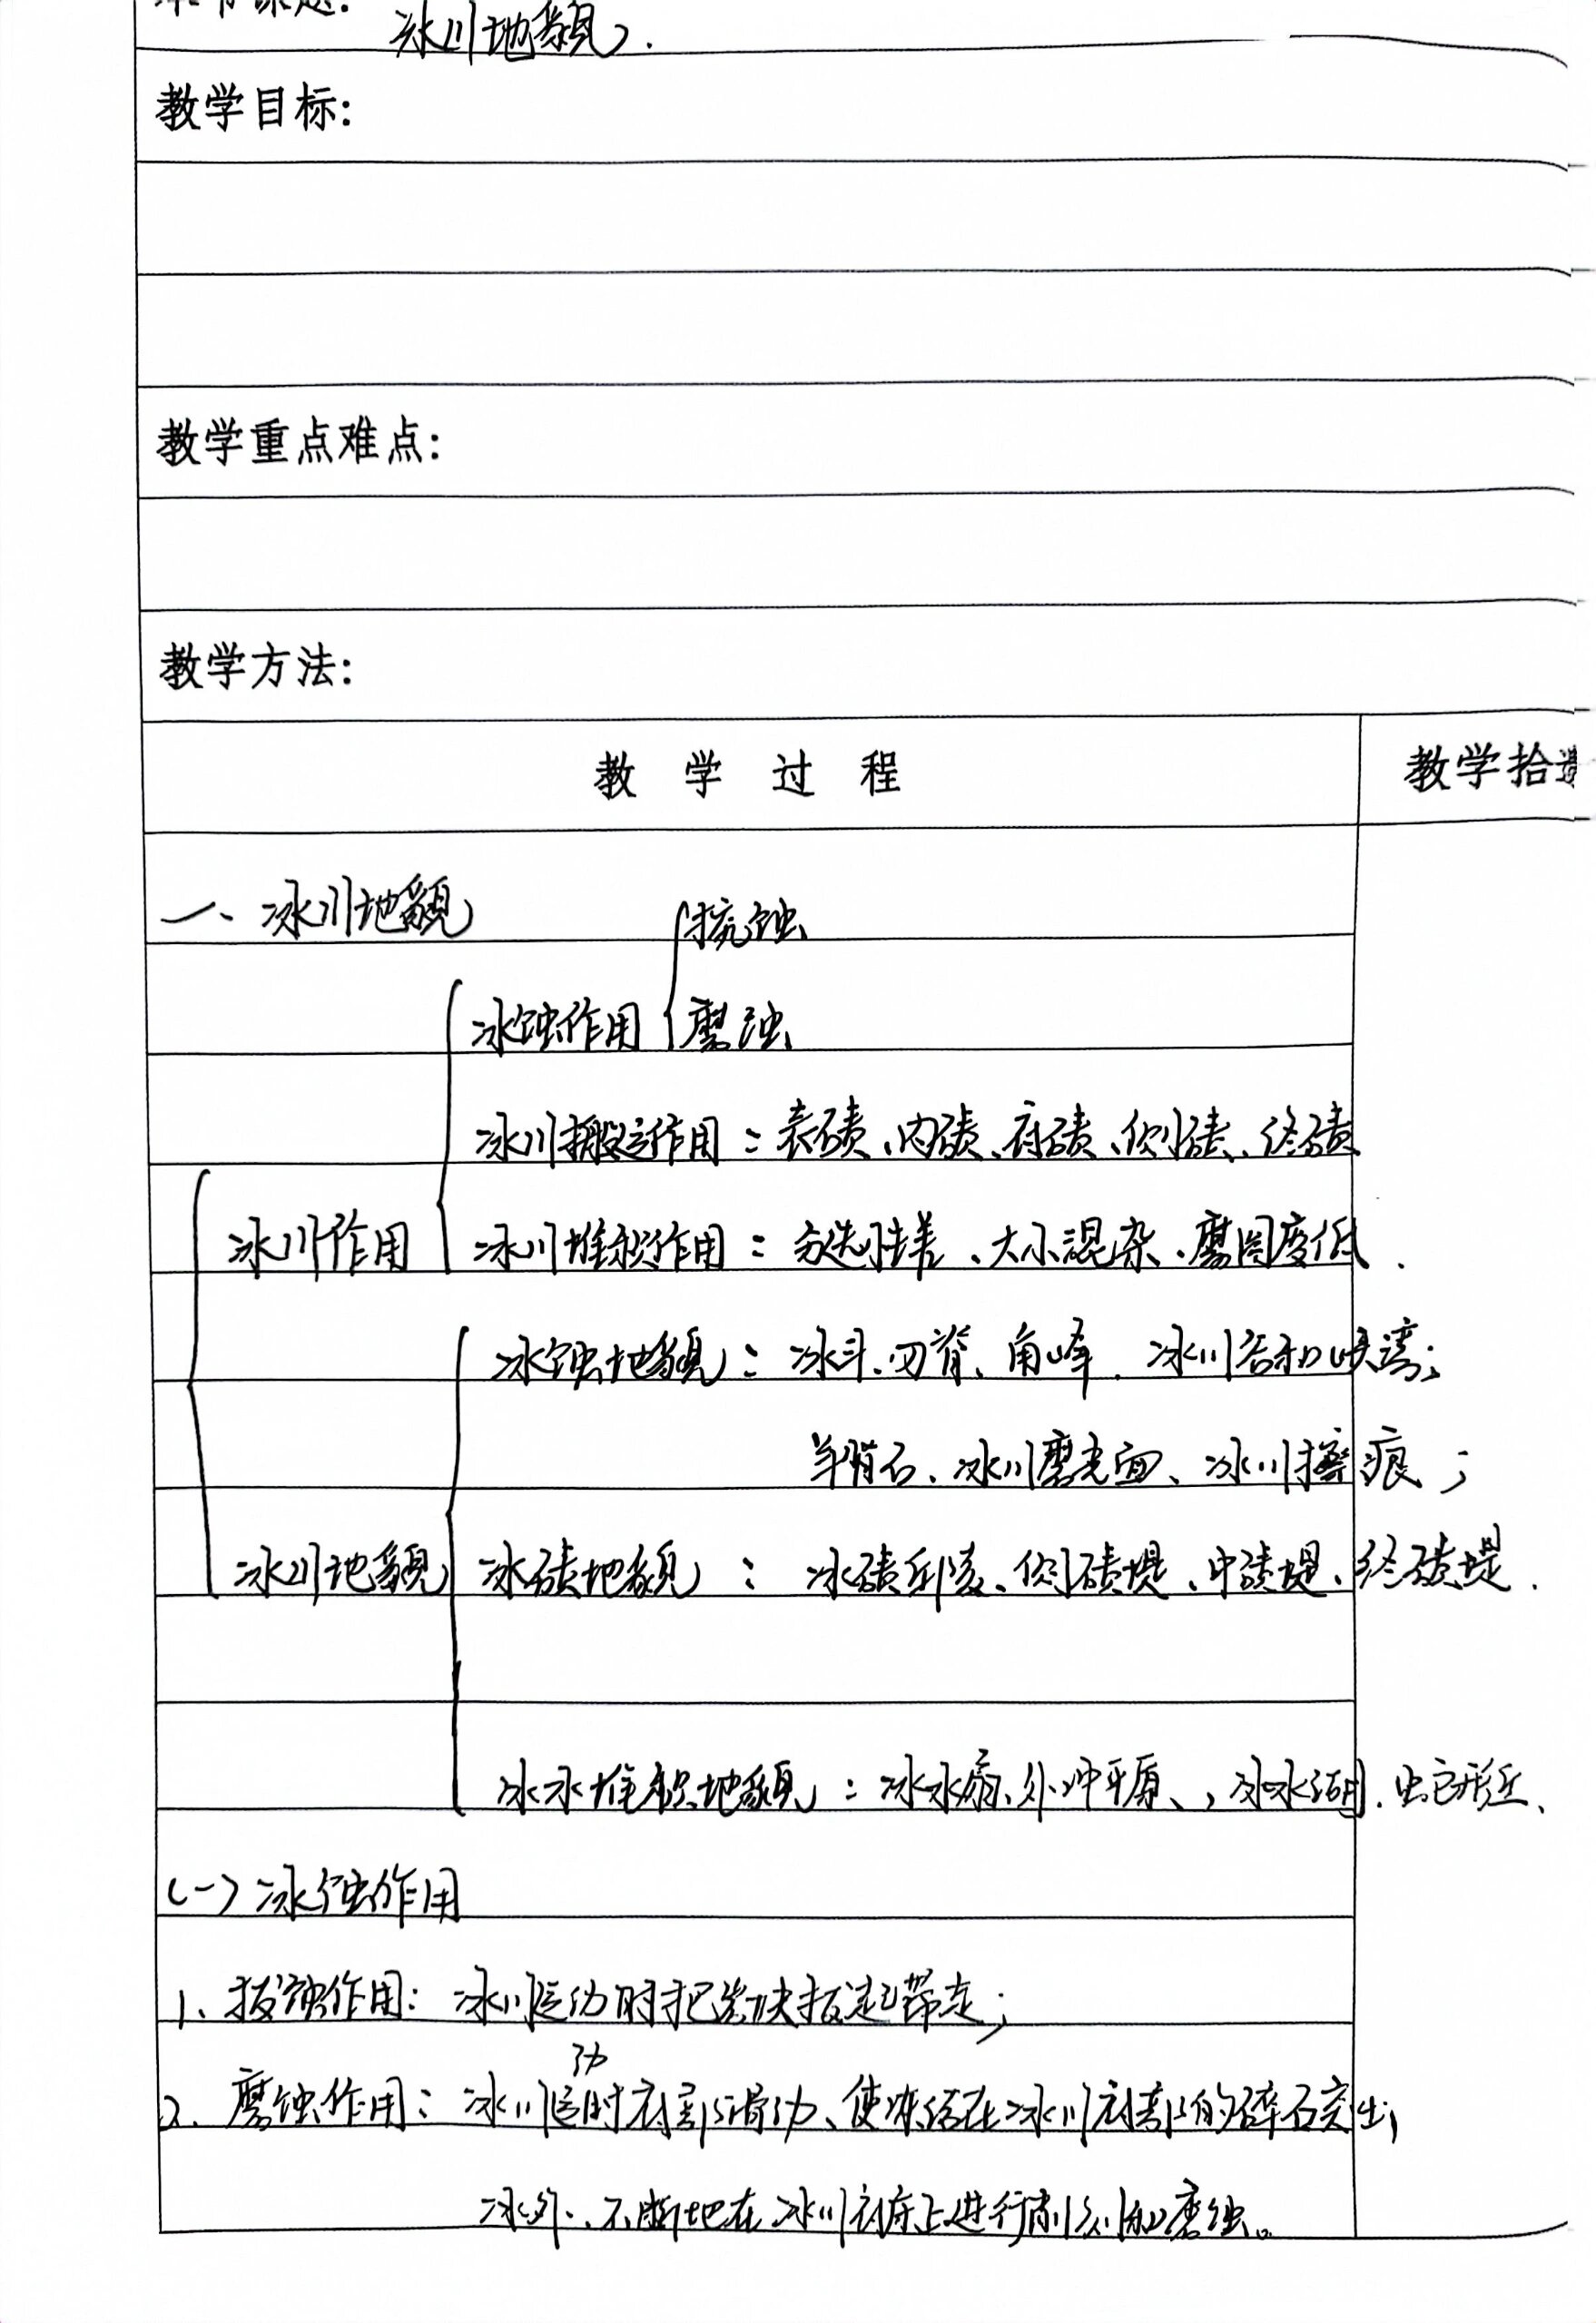 本节课题:
冰川地貌.
教学目标:
教学重点难点:
教学方法:
教 学 过 程
教学拾遗
一、冰川地貌
挖蚀
冰蚀作用
磨蚀
冰川搬运作用：表碛、内碛、底碛、侧碛、终碛
冰川作用
冰川堆积作用：分选性差、大小混杂、磨圆度低.
冰蚀地貌：冰斗、刃脊、角峰、冰川谷和峡湾；
羊背石、冰川磨光面、冰川擦痕；
冰川地貌
冰碛地貌：冰碛丘陵、侧碛堤、中碛堤、终碛堤.
冰水堆积地貌：冰水扇、外冲平原、，冰水湖、蛇形丘、
(一)冰蚀作用
1、拔蚀作用：冰川运动时把岩块拔起带走；
2、磨蚀作用：冰川运动时底部滑动、使冻结在冰川底部的碎石突出
冰外、不断地在冰川底床上进行削刻和磨蚀。